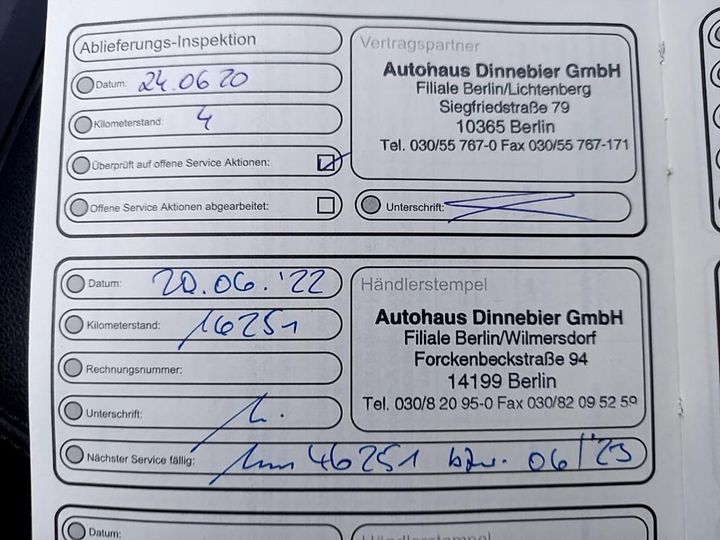 Ablieferungs-Inspektion
Datum: 24.06 20
Kilometerstand: 4
Überprüft auf offene Service Aktionen:
Offene Service Aktionen abgearbeitet:
Vertragspartner
Autohaus Dinnebier GmbH
Filiale Berlin/Lichtenberg
Siegfriedstraße 79
10365 Berlin
Tel. 030/55 767-0 Fax 030/55 767-171
Unterschrift:
Datum: 20.06.'22
Kilometerstand: 16251
Rechnungsnummer:
Unterschrift:
Nächster Service fällig: 46251 bzw. 06/'23
Händlerstempel
Autohaus Dinnebier GmbH
Filiale Berlin/Wilmersdorf
Forckenbeckstraße 94
14199 Berlin
Tel. 030/8 20 95-0 Fax 030/82 09 52 59
Datum:
Händlerstempel